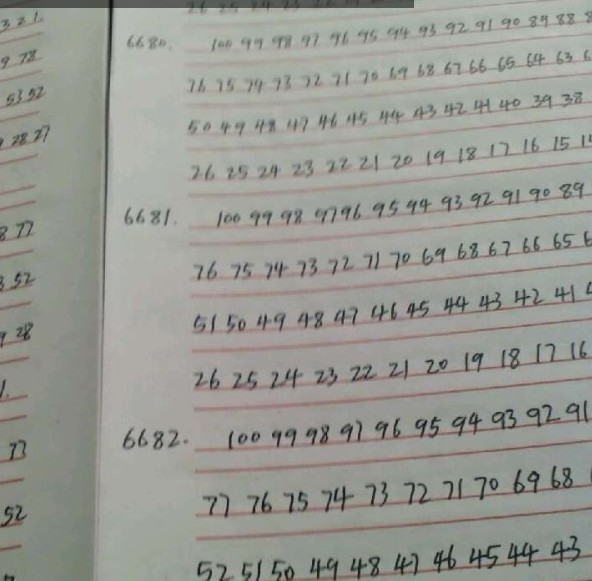 3 2 1.
9 78
53 52
28 27
8 77
3 52
9 28
1.
77
52
26 25 24 23 22 21
6680. 100 99 98 97 96 95 94 93 92 91 90 89 88
76 75 74 73 72 71 70 69 68 67 66 65 64 63
50 49 48 47 46 45 44 43 42 41 40 39 38
26 25 24 23 22 21 20 19 18 17 16 15
6681. 100 99 98 97 96 95 94 93 92 91 90 89
76 75 74 73 72 71 70 69 68 67 66 65
51 50 49 48 47 46 45 44 43 42 41
26 25 24 23 22 21 20 19 18 17 16
6682. 100 99 98 97 96 95 94 93 92 91
77 76 75 74 73 72 71 70 69 68
52 51 50 49 48 47 46 45 44 43